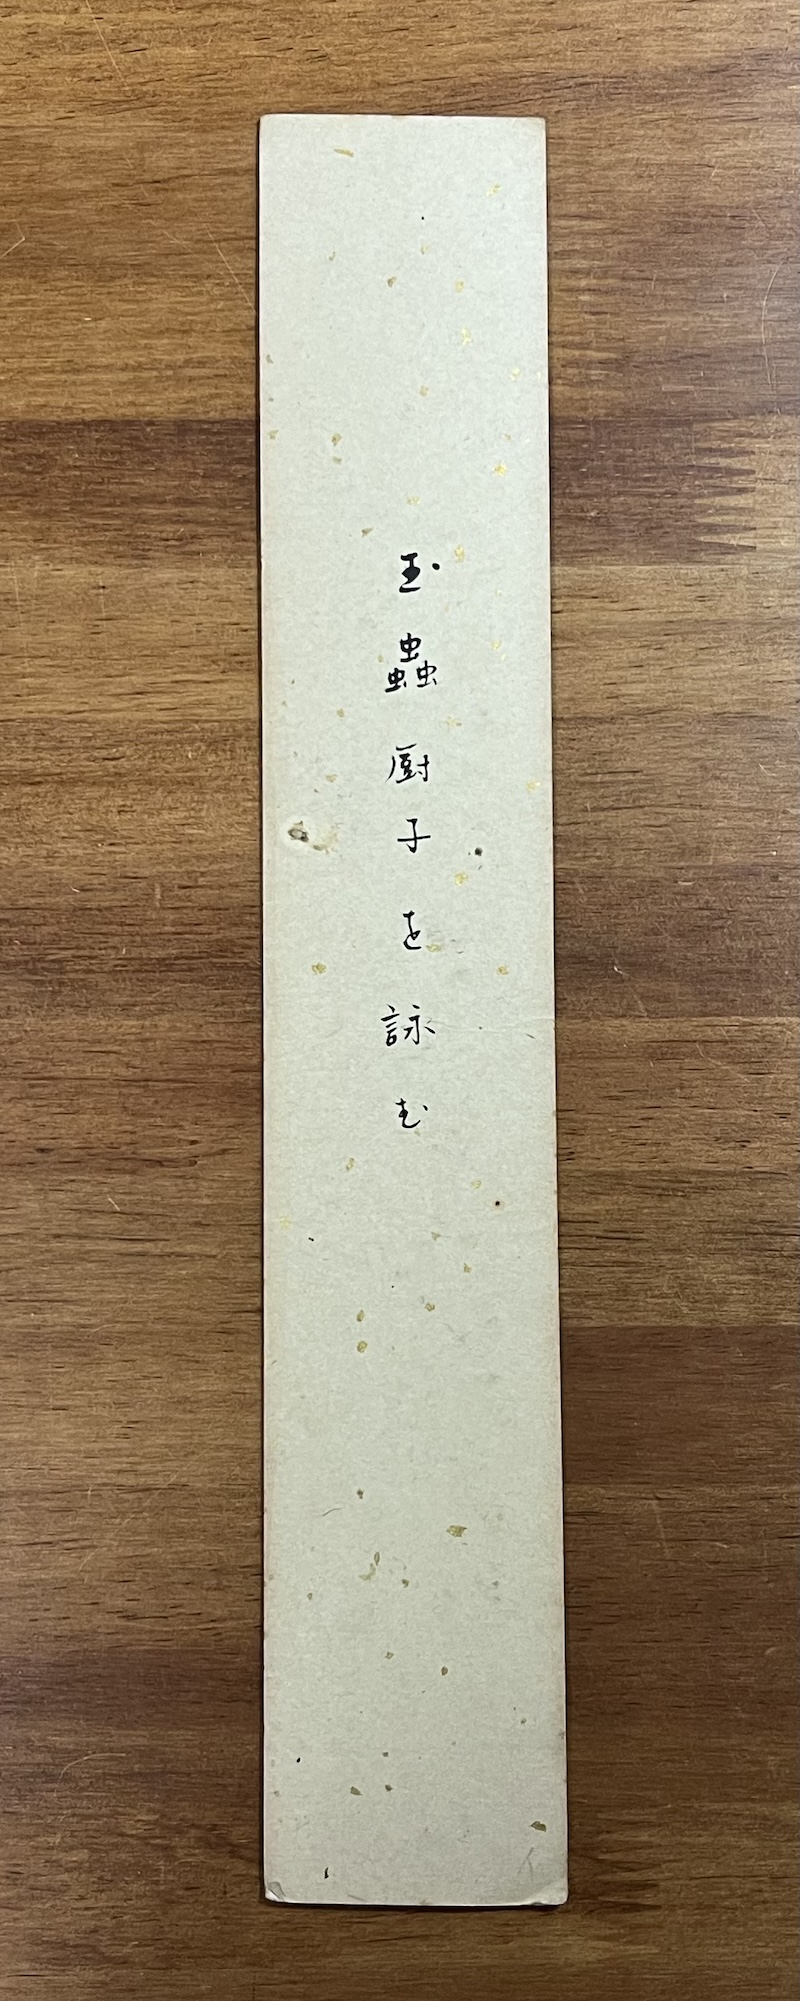 玉蟲厨子を詠む